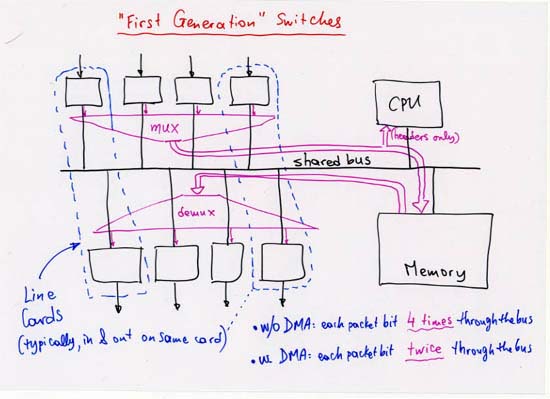 "First Generation" Switches
CPU
mux
(headers only)
shared bus
demux
Memory
Line
Cards
(typically, in & out on same card)
• w/o DMA: each packet bit 4 times through the bus
• w. DMA: each packet bit twice through the bus